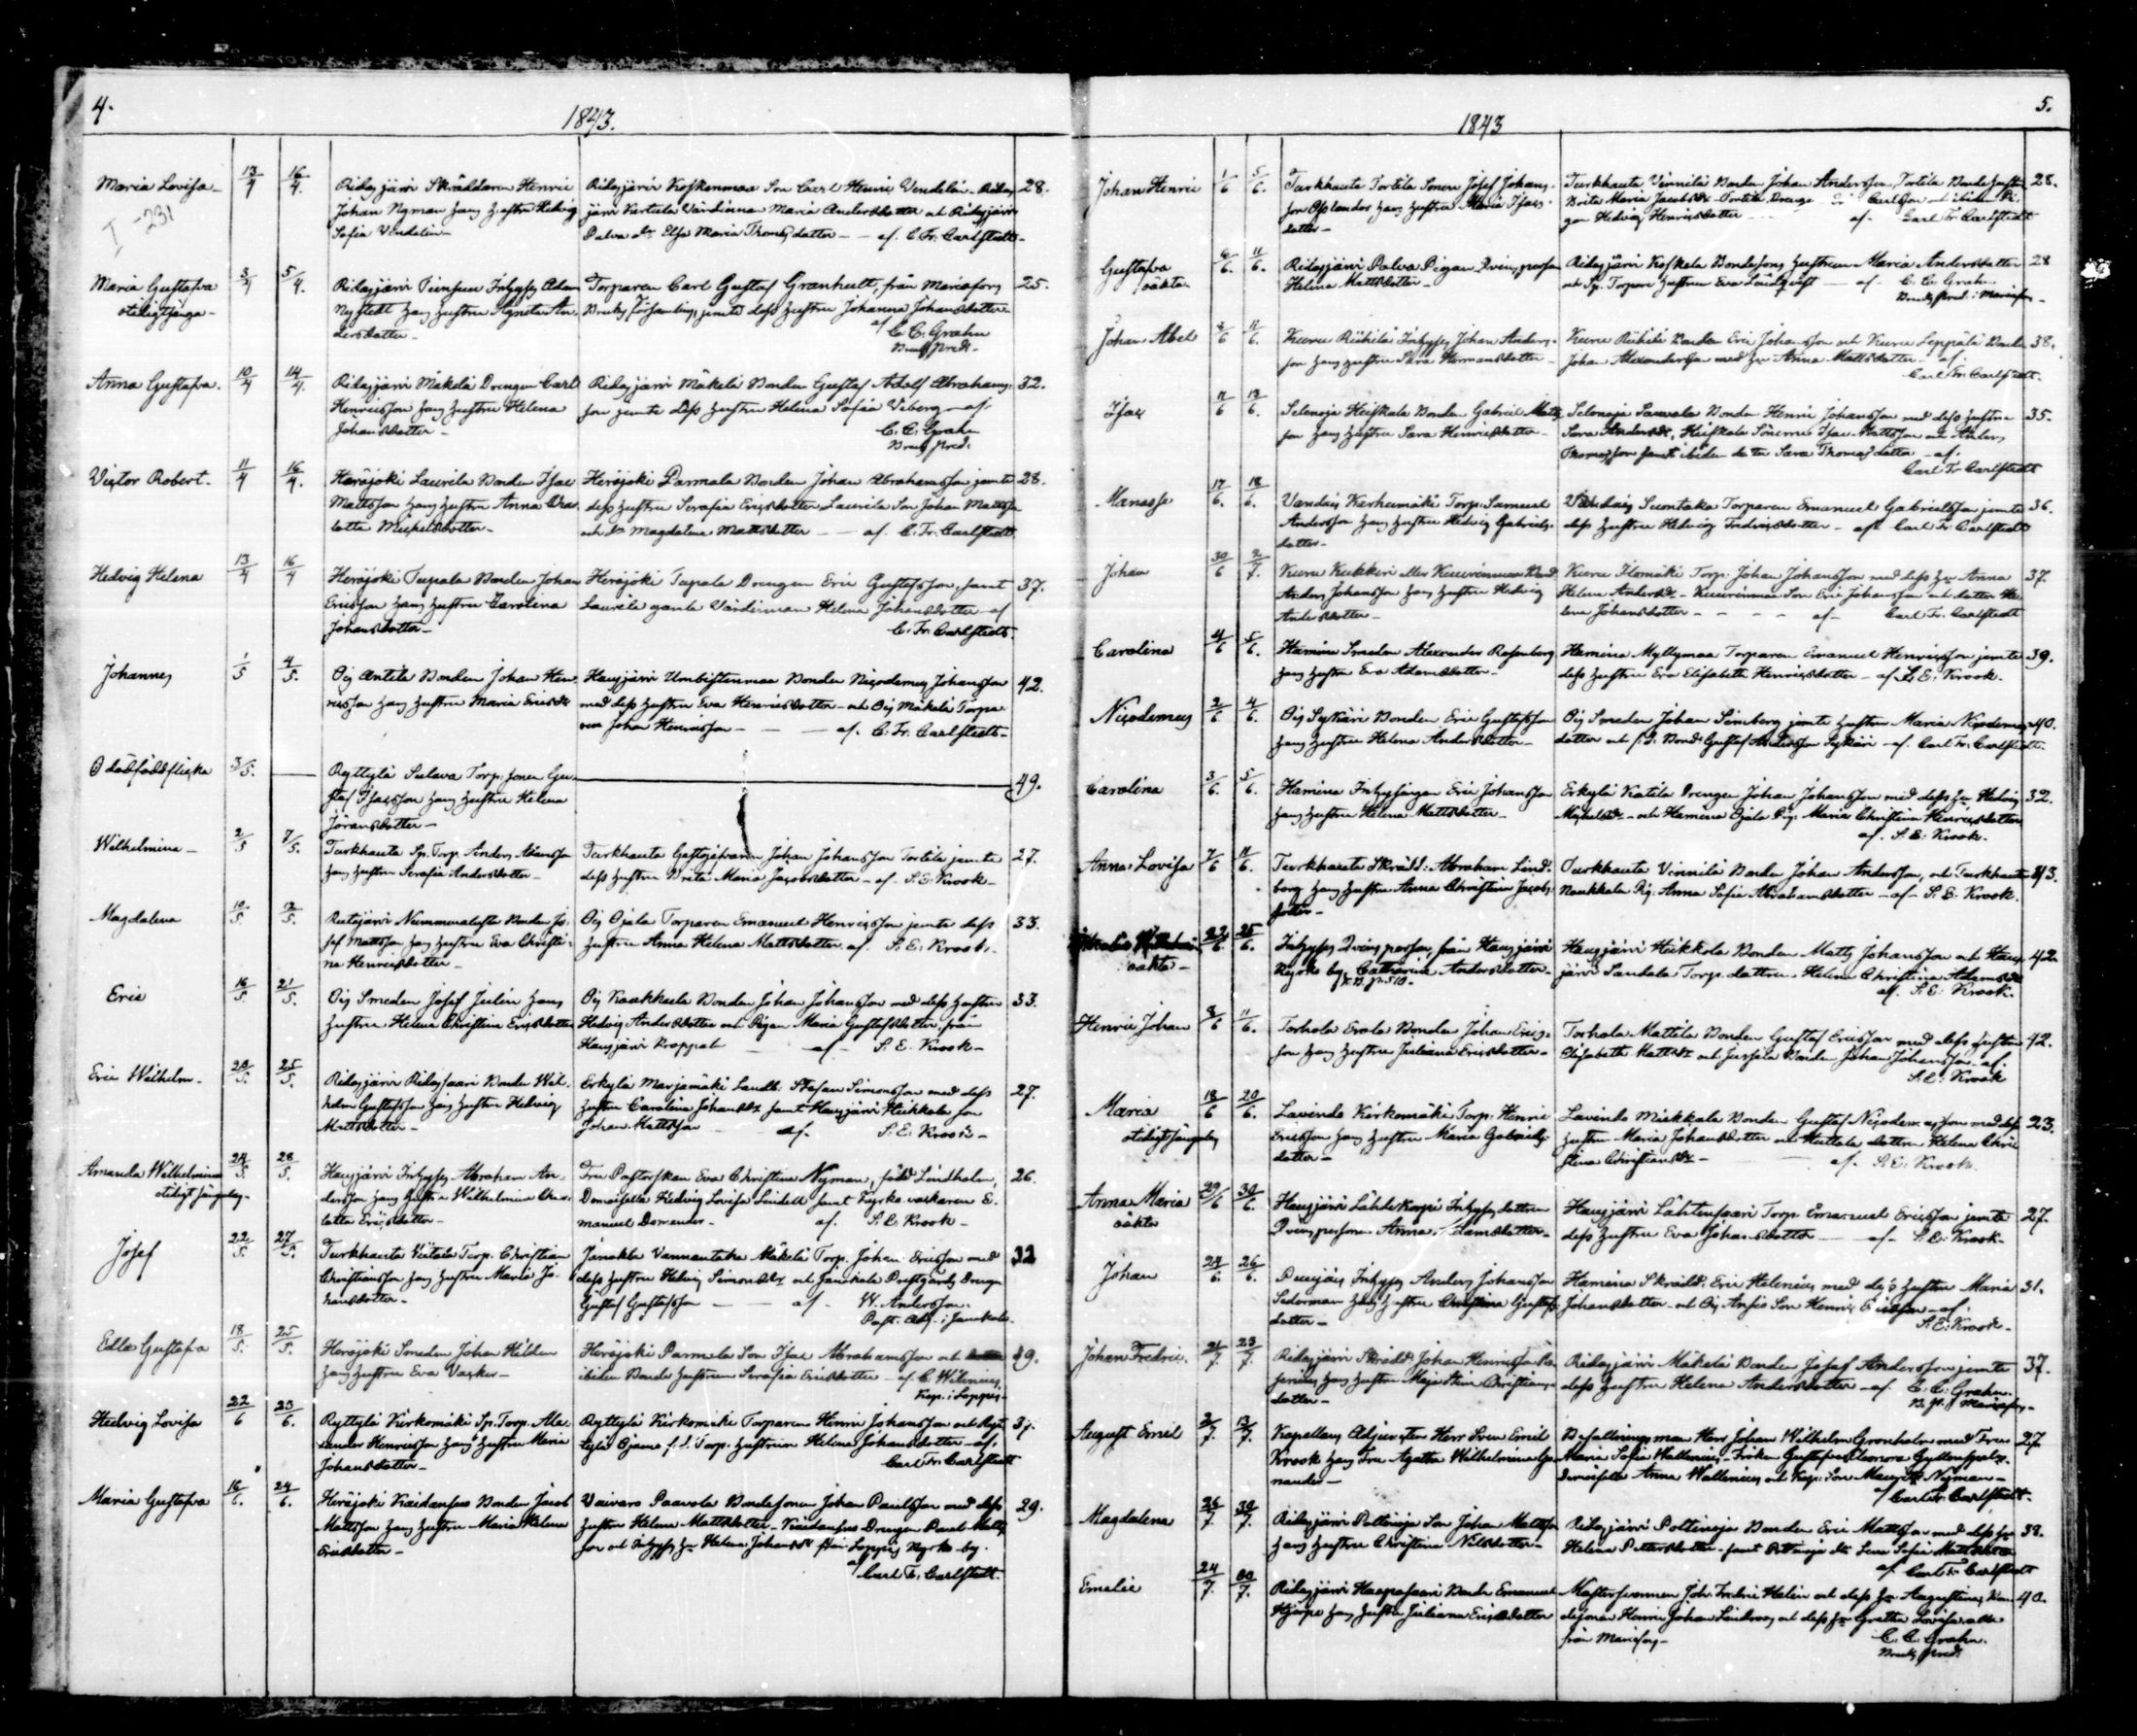 4.
1843.
Maria Lovisa 13/4 16/4. Ridasjärvi Skräddaren Henric Ridasjärvi Koskenmaa Son Carl Henric Vendelin
28.
Johan Nyman hans hustru Hedvig järvi Kertula Värdinna Maria Andersdotter och Ridasjärvi
Sofia Vendelin Palva Elsa Maria Thomasdotter af C. Fr. Carlstedt
I-231
Maria Gustafva 3/4 5/4. Ridasjärvi Inhyses Adam Torparen Carl Gustaf Granhult, från Mariefors 25.
Nystedt hans hustru Agneta An- Bruks Församling, jemte dess hustru Johanna Johansdotter
dersdotter af C. C. Grahn
Bruks Pred.
Anna Gustafva. 10/4 14/4. Ridasjärvi Mäkelä Drengen Carl Ridasjärvi Mäkelä Bonden Gustaf Adolf Abrahams- 32.
Henricsson hans hustru Helena son jemte dess hustru Helena Sofia Viberg af
Johansdotter C. C. Grahn
Bruks Pred.
Victor Robert 11/4 16/4. Herajoki Laurila Bonden Isac Herajoki Parmala Bonden Johan Abrahamsson jemte 28.
Mattsson hans hustru Anna Char- dess hustru Serafia Ericsdotter Laurila Son Johan Mattsson
lotta Michelsdotter och Magdalena Mattsdotter af C. Fr. Carlstedt
Hedvig Helena 13/4 16/4 Herajoki Tupala Bonden Johan Herajoki Tupala Drengen Eric Gustafsson, samt 37.
Ericsson hans hustru Carolina Laurila gamla Värdinnan Helena Johansdotter af
Johansdotter C. Fr. Carlstedt.
Johannes 1/5 4/5. Oij Anttila Bonden Johan Hen- Hausjärvi Umbistenmaa Bonden Nicodemus Johansson 42.
ricsson hans hustru Maria Ericsdr med dess hustru Eva Henricsdotter och Oij Mäkelä Torpa-
ren Johan Henricsson af C. Fr. Carlstedt
O dödfödd flicka 3/5. Ryttylä Sulava Torp. sonen Gu- 49.
staf Isacsson hans hustru Helena
Göransdotter
Wilhelmina 2/5 7/5. Turkhauta Sp. Torp. Anders Adamsson Turkhauta Gästgifvaren Johan Johansson Tortila jemte 27.
hans hustru Serafia Andersdotter dess hustru Brita Maria Jacobsdotter af S. E. Krook
Magdalena 10/5 Bonden Jo- Oij Ojala Torparen Emanuel Henricsson jemte dess 33.
sef Mattsson hans hustru Eva Christi- hustru Anna Helena Mattsdotter af S. E. Krook.
na Henricsdotter
Eric 16/5 21/5. Oij Smeden Josef Julin hans Oij Kaukkula Bonden Johan Johansson med dess hustru 33.
hustru Helena Christina Ericsdotter Hedvig Andersdotter och Pigan Maria Gustafsdotter, från
Hausjärvi af S. E. Krook
Eric Wilhelm 20/5. 25/5. Ridasjärvi Ridassaari Bonden Wil- Erkylä Marjamäki Landb. Stefan Simonsson med dess 27.
helm Gustafsson hans hustru Hedvig hustru Carolina Johansdr samt Hausjärvi Heikkola son
Mattsdotter Johan Mattsson af S. E. Krook
Amanda Wilhelmina 24/5. 28/5. Hausjärvi Inhyses Abraham An- Fru Pastorskan Eva Christina Nyman, född Lindholm, 26.
otidigt sängelag dersson hans hustru Wilhelmina Char- Demoiselle Hedvig Lovisa Lindell samt Kyrkovaktaren E-
lotta Ericsdotter manuel Domander af S. E. Krook
Josef 22/5. 27/5. Turkhauta Torp. Christian Janakkala Vannantaka Mäkelä Torp. Johan Ericsson med 32
Christiansson hans hustru Maria Jo- dess hustru Hedvig Simonsdr och Janakkala Prestgårds Dreng
hansdotter Gustaf Gustafsson af W. Andersson.
Past. Adj. i Janakkala.
Edla Gustafva 18/5. 25/5. Herajoki Smeden Johan Hilden Herajoki Parmala Son Isac Abrahamsson och 29.
hans hustru Eva ibidem Bonde hustrun Serafia Ericsdotter af C. Wilenius,
Kap. i Loppis
Hedvig Lovisa 22/6 23/6. Ryttylä Kirkomäki Sp. Torp. Ale- Ryttylä Kirkomäki Torparen Henric Johansson och Ryt- 37.
xander Henricsson hans hustru Maria tylä Ojanen f.d. Torp. hustrun Helena Johansdotter af
Johansdotter Carl Fr. Carlstedt
Maria Gustafva 16/6. 24/6. Herajoki Kaidansuo Bonden Jacob Vaivaro Paavola Bondesonen Johan Paulsson med dess 29.
Mattsson hans hustru Maria Helena hustru Helena Mattsdotter Kaidansuo Drengen Paul Matts-
Ericsdotter son och Inhyses Helena Johansdr från Loppis Kyrkoby.
af Carl Fr. Carlstedt.
5.
1843
Johan Henric 1/6 5/6. Turkhauta Tortila Sonen Josef Johans- Turkhauta Vinnilä Bonden Johan Andersson, Tortila Bonde hustru 28.
son hans hustru Maria Isacs- Brita Maria Jacobsdr Tortila Dreng Carlsson och ibidem Pi-
dotter gan Hedvig Henricsdotter af Carl Fr. Carlstedt
Gustafva 6/6. 11/6. Ridasjärvi Palva Pigan Qvinsperson Ridasjärvi Koskela Bondesons hustrun Maria Andersdotter 28
oäkta Helena Mattsdotter och Sp. Torpare hustrun Eva Lindqvist af C. C. Grahn
Bruks Pred. i Mariefors
Johan Abel 11/6. Kuru Riihilä Inhyses Johan Anders- Kuru Riihilä Bonden Eric Johansson och Kuru Leppälä Bonden 38.
son hans hustru Sara Hermansdotter Johan Alexandersson med Anna Mattsdotter af
Carl Fr. Carlstedt.
Isac 11/6 13/6. Selenoja Heiskala Bonden Gabriel Matts- Selenoja Bonden Henric Johansson med dess hustru 35.
son hans hustru Sara Henricsdotter Sara Andersdr, Heiskala Sönerne Isac Mattsson och Anders
Thomasson samt ibidem dotter Sara Thomasdotter af
Carl Fr. Carlstedt
Manasse 17/6. 18/6. Vandais Kerhumäki Torp. Samuel Vandais Suontaka Torparen Emanuel Gabrielsson jemte 36.
Andersson hans hustru Hedvig Gabriels- dess hustru Hedvig Fredricsdotter af Carl Fr. Carlstedt
dotter
Johan 30/6 2/7. Kuru Kukkeri eller Kuurinmaa Bond. Kuru Torp. Johan Johansson med dess Anna 37.
Anders Johansson hans hustru Hedvig Helena Andersdr Son Eric Johansson och dotter He-
Andersdotter lena Johansdotter af Carl Fr. Carlstedt
Carolina 4/6 5/6. Hamina Smeden Alexander Rosenberg Hamina Myllymaa Torparen Emanuel Henricsson jemte 39.
hans hustru Eva Adamsdotter dess hustru Eva Elisabeth Henricsdotter af S. E. Krook.
Nicodemus 2/6 4/6. Oij Sykäri Bonden Eric Gustafsson Oij Smeden Johan Simberg jemte hustru Maria Nicodemus- 40.
hans hustru Helena Andersdotter dotter och f.d. Bond. Gustaf Andersson Sykäri af Carl Fr. Carlstedt.
Carolina 3/6. 5/6. Hamina Inhysingen Eric Johansson Erkylä Katila Drengen Johan Johansson med dess Hedvig 32.
hans hustru Helena Mattsdotter Michelsdr och Hamina Ojala Pig. Maria Christina Henricsdotter
af S. E. Krook.
Anna Lovisa 7/6 11/6. Turkhauta Skrädd. Abraham Lind- Turkhauta Vinnilä Bonden Johan Andersson, och Turkhauta 43.
borg hans hustru Anna Christina Jacobs- Naukkala Pig. Anna Sofia Abrahamsdotter af S. E. Krook.
dotter
25/6. Inhyses Qvinsperson, från Hausjärvi Hausjärvi Heikkola Bonden Matts Johansson och Haus- 42.
oäkta Kyrko by, Catharina Andersdotter järvi Santala Torp. dottren Helena Christina Adamsdr
af S. E. Krook.
Henric Johan 8/6 11/6. Torhola Erola Bonden Johan Erics- Torhola Mattila Bonden Gustaf Ericsson med dess hustru 42.
son hans hustru Juliana Ericsdotter Elisabeth Mattsdr och Jussila Bonden Johan Johansson af
S. E. Krook
Maria 18/6 20/6. Lavinto Kirkomäki Torp. Henric Lavinto Miekkala Bonden Gustaf Nicodemusson med dess 23.
otidigt sängelag Ericsson hans hustru Maria Gabriels- hustru Maria Johansdotter och dotter Helena Chri-
dotter stina Christiansdr af S. E. Krook.
Anna Maria 29/6 30/6. Hausjärvi Lähdekorpi Inhyses dottren Hausjärvi Lähtensaari Torp. Emanuel Ericsson jemte 27.
oäkta Qvinsperson Anna Adamsdotter dess hustru Eva Johansdotter af S. E. Krook
Johan 24/6. 26/6. Inhyses Anders Johansson Hamina Skrädd. Eric Helenius med dess hustru Maria 31.
Sederman hans hustru Christina Gustafs- Johansdotter och Oij Son Henric Ericsson af
dotter S. E. Krook
Johan Fredric. 21/7. 23/7. Ridasjärvi Skrädd. Johan Henricsson Ridasjärvi Mäkelä Bonden Josef Andersson jemte 37.
hans hustru Maja Stina Christians- dess hustru Helena Andersdotter af C. C. Grahn.
dotter B. P. i Mariefors
August Emil 2/7. 13/7. Kapellans Adjuncten Herr Sven Emil Befallningsman Herr Johan Wilhelm Gronholm med Fru 27.
Krook hans Fru Agatha Wilhelmina Maria Sofia Wallenius, Fröken Gustafva Eleonora
nander Demoiselle Anna Wallenius och Kap. Son Mauritz Nyman
af Carl Fr. Carlstedt.
Magdalena 26/7. 30/7. Ridasjärvi Poltinoja Son Johan Mattsson Ridasjärvi Poltinoja Bonden Eric Mattsson med dess 38.
hans hustru Christina Nilsdotter Helena Pettersdotter samt Poltinoja Lena Sofia Mattsdotter
af Carl Fr. Carlstedt
Emelie 24/7. 30/7. Ridasjärvi Haapasaari Bonden Emanuel Mästersvennen Joh. Fredric Helin och dess Augustina, 40.
Hjorpe hans hustru Juliana Ericsdotter Henric Johan Lindroos och dess Gretha Lovisa, alla
från Mariefors
C. C. Grahn.
Bruks Pred.